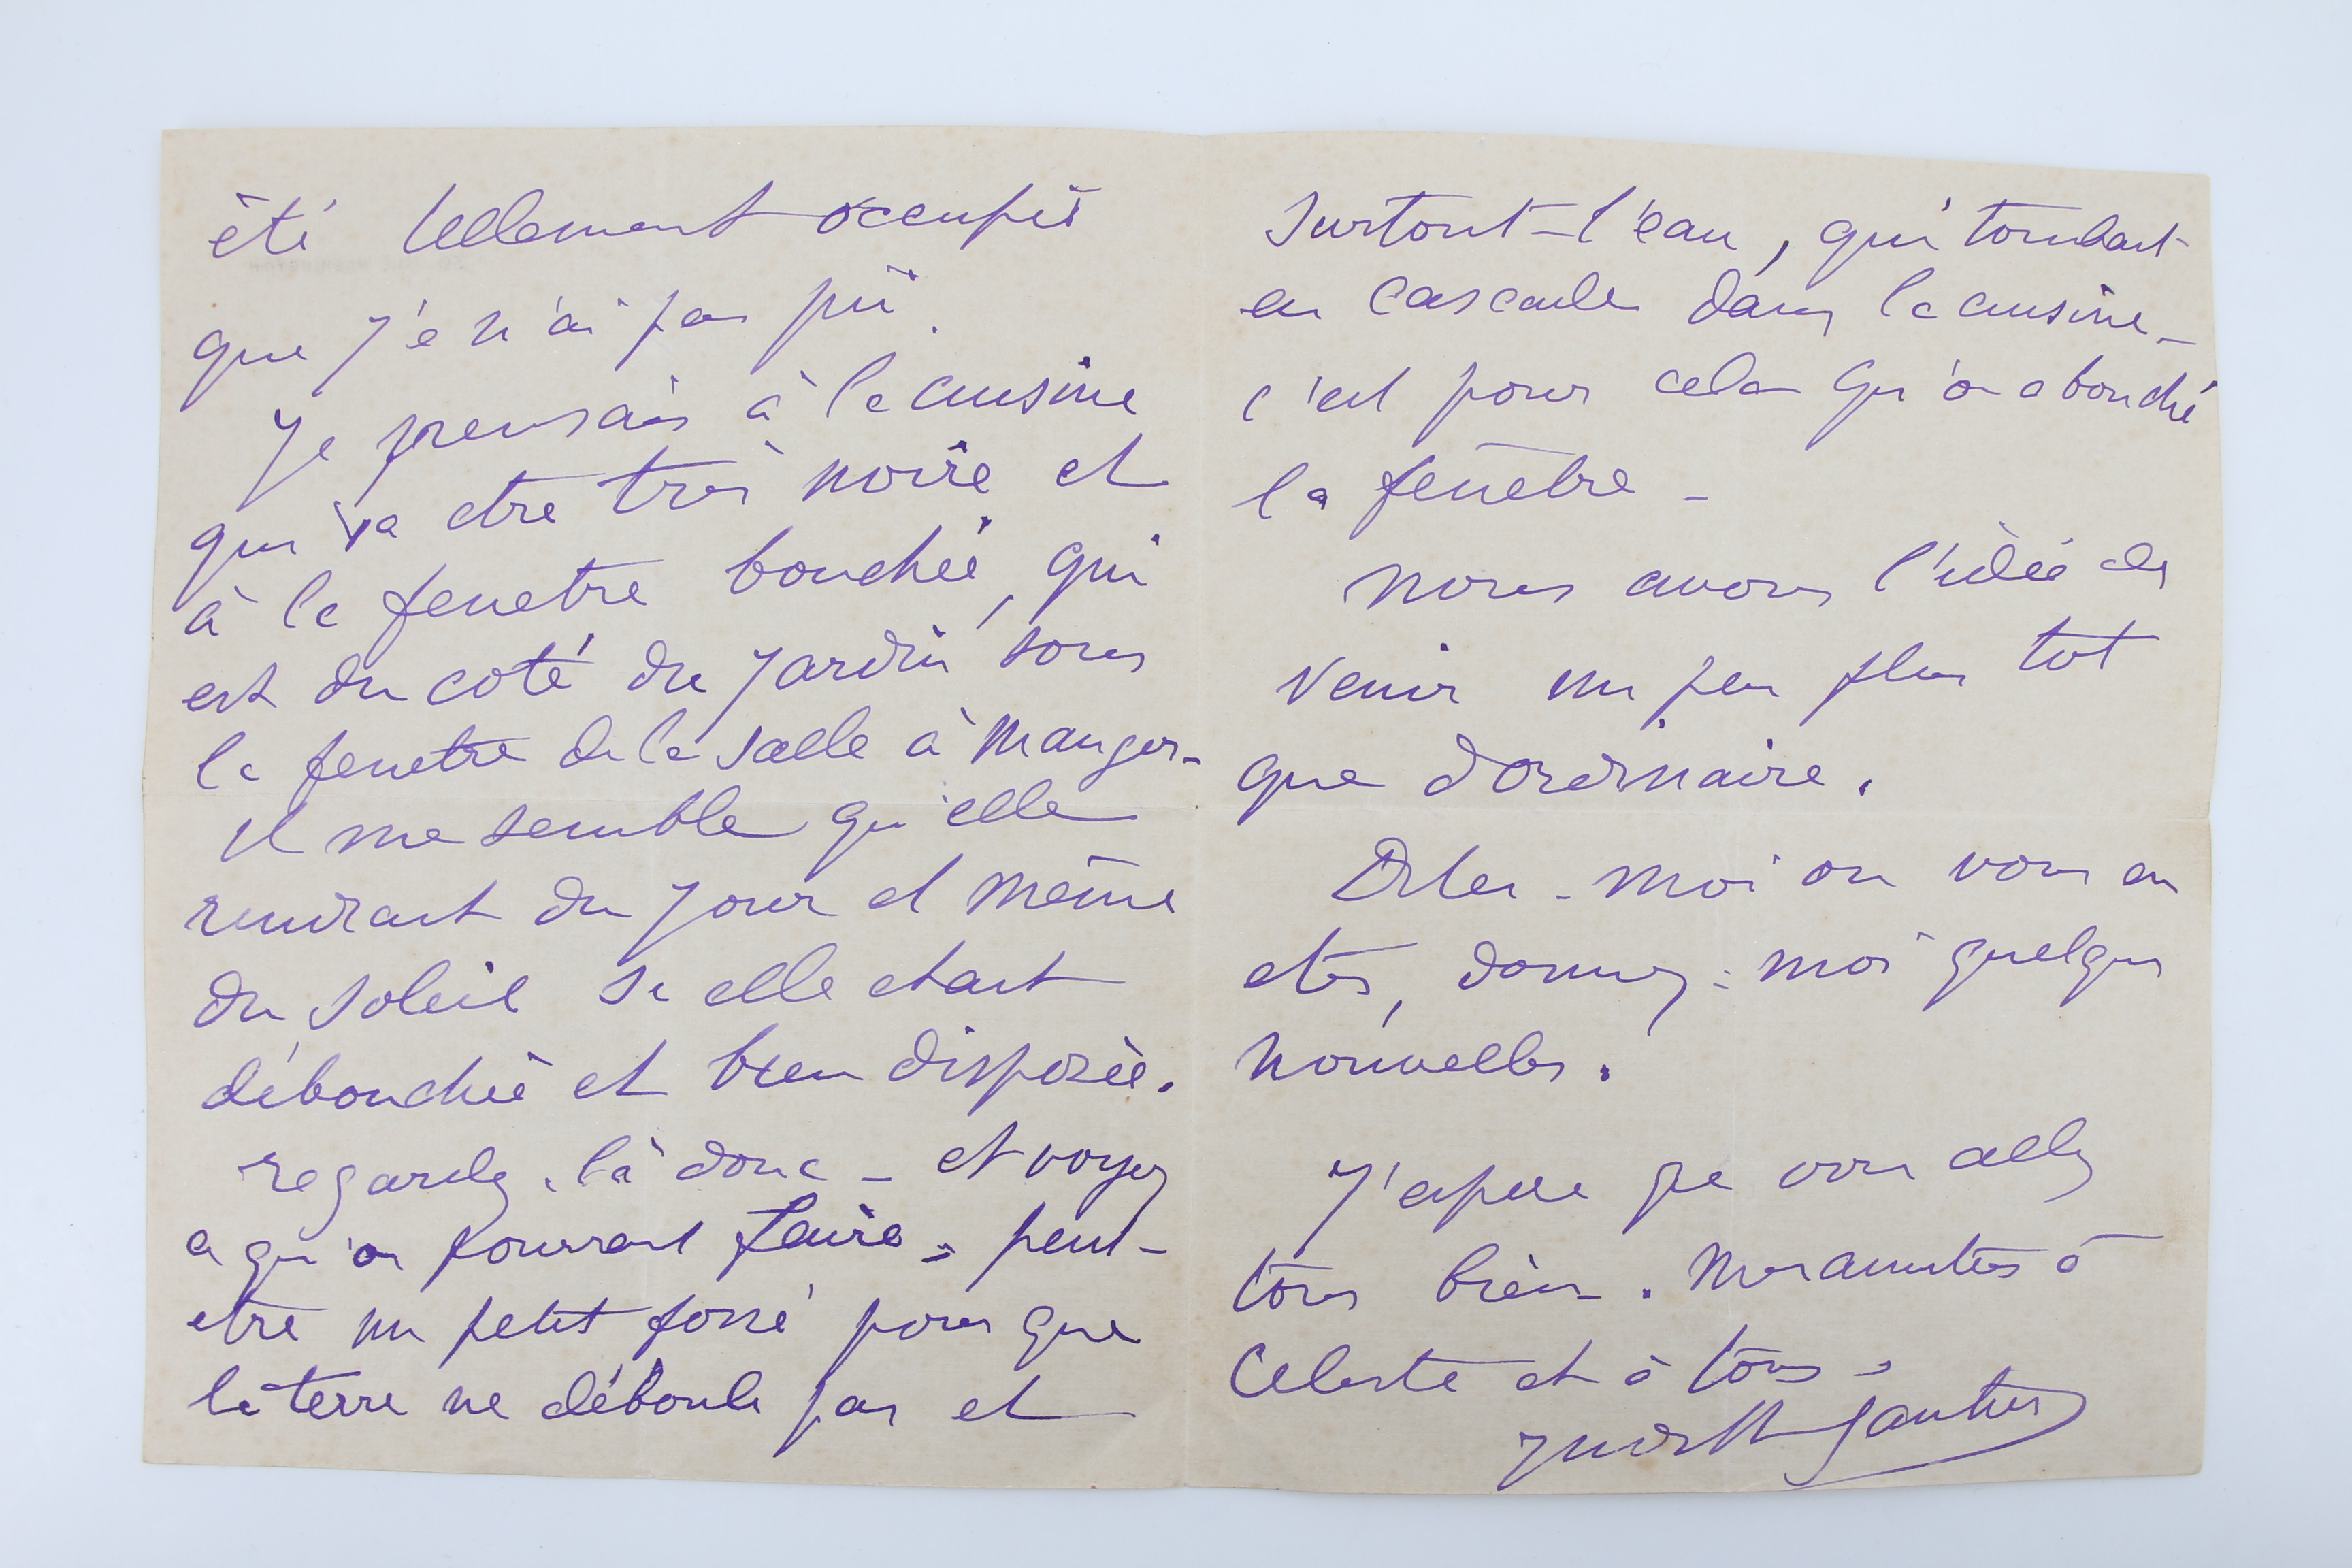 été tellement occupée
que je n'ai pas pü.
Je pensais à la cuisine
qui va etre très noire et
à la fenetre bouchée, qui
est du coté du jardin sous
la fenetre de la salle à manger -
il me semble qu'elle
rendrait du jour et même
du soleil si elle etait
débouchée et bien disposée.
regardez-là donc - et voyez
ce qu'on pourrait faire - peut-
etre un petit fossé pour que
la terre ne déboule pas et
surtout - l'eau, qui tombait
en cascade dans la cuisine -
c'est pour cela qu'on a bouché
la fenêtre -
nous avons l'idée de
venir un peu plus tot
que d'ordinaire.
Dites-moi ou vous en
etes, donnez-moi quelques
nouvelles.
J'espere que vous allez
tous bien. Mes amitiés à
Celeste et à tous -
Judith Gautier